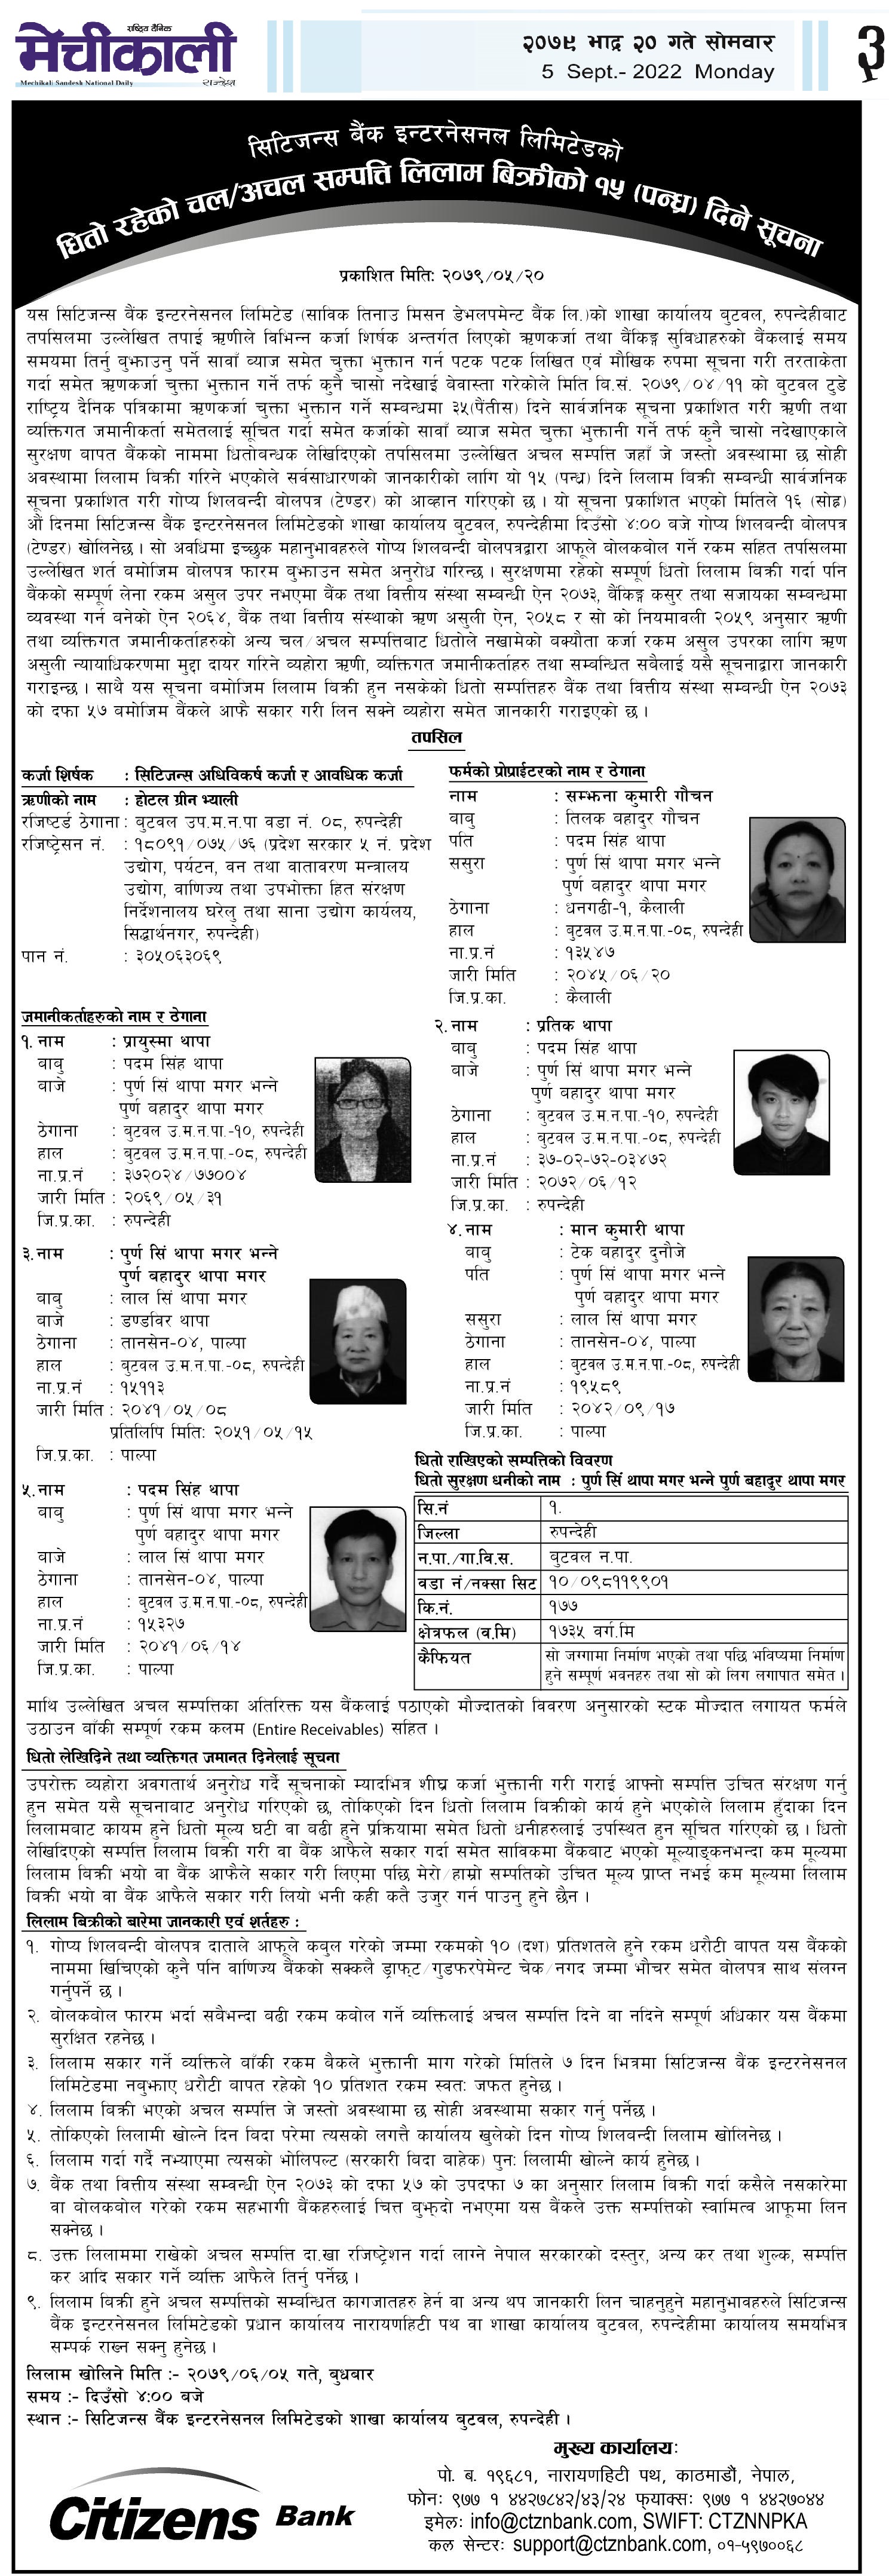 राष्ट्रिय दैनिक
मेचीकाली
Mechikali Sandesh National Daily
सन्देश
२०७९ भाद्र २० गते सोमवार
5 Sept.- 2022 Monday
३
सिटिजन्स बैंक इन्टरनेसनल लिमिटेडको
धितो रहेको चल/अचल सम्पत्ति लिलाम बिक्रीको १५ (पन्ध्र) दिने सूचना
प्रकाशित मितिः २०७९/०५/२०
यस सिटिजन्स बैंक इन्टरनेसनल लिमिटेड (साविक तिनाउ मिसन डेभलपमेन्ट बैंक लि.)को शाखा कार्यालय बुटवल, रुपन्देहीबाट
तपसिलमा उल्लेखित तपाई ऋणीले विभिन्न कर्जा शिर्षक अन्तर्गत लिएको ऋणकर्जा तथा बैंकिङ्ग सुविधाहरुको बैंकलाई समय
समयमा तिर्नु बुझाउनु पर्ने सावाँ व्याज समेत चुक्ता भुक्तान गर्न पटक पटक लिखित एवं मौखिक रुपमा सूचना गरी तरताकेता
गर्दा समेत ऋणकर्जा चुक्ता भुक्तान गर्ने तर्फ कुनै चासो नदेखाई बेवास्ता गरेकोले मिति वि.सं. २०७९/०४/११ को बुटवल टुडे
राष्ट्रिय दैनिक पत्रिकामा ऋणकर्जा चुक्ता भुक्तान गर्ने सम्बन्धमा ३५(पैंतीस) दिने सार्वजनिक सूचना प्रकाशित गरी ऋणी तथा
व्यक्तिगत जमानीकर्ता समेतलाई सूचित गर्दा समेत कर्जाको सावाँ व्याज समेत चुक्ता भुक्तानी गर्ने तर्फ कुनै चासो नदेखाएकाले
सुरक्षण वापत बैंकको नाममा धितोबन्धक लेखिदिएको तपसिलमा उल्लेखित अचल सम्पत्ति जहाँ जे जस्तो अवस्थामा छ सोही
अवस्थामा लिलाम बिक्री गरिने भएकोले सर्वसाधारणको जानकारीको लागि यो १५ (पन्ध्र) दिने लिलाम बिक्री सम्बन्धी सार्वजनिक
सूचना प्रकाशित गरी गोप्य शिलबन्दी बोलपत्र (टेण्डर) को आव्हान गरिएको छ । यो सूचना प्रकाशित भएको मितिले १६ (सोह्र)
औं दिनमा सिटिजन्स बैंक इन्टरनेसनल लिमिटेडको शाखा कार्यालय बुटवल, रुपन्देहीमा दिउँसो ४:०० बजे गोप्य शिलबन्दी बोलपत्र
(टेण्डर) खोलिनेछ । सो अवधिमा इच्छुक महानुभावहरुले गोप्य शिलबन्दी बोलपत्रद्वारा आफूले बोलकबोल गर्ने रकम सहित तपसिलमा
उल्लेखित शर्त बमोजिम बोलपत्र फारम बुझाउन समेत अनुरोध गरिन्छ । सुरक्षणमा रहेको सम्पूर्ण धितो लिलाम बिक्री गर्दा पनि
बैंकको सम्पूर्ण लेना रकम असुल उपर नभएमा बैंक तथा वित्तीय संस्था सम्बन्धी ऐन २०७३, बैंकिङ्ग कसुर तथा सजायका सम्बन्धमा
व्यवस्था गर्न बनेको ऐन २०६४, बैंक तथा वित्तीय संस्थाको ऋण असुली ऐन, २०५८ र सो को नियमावली २०५९ अनुसार ऋणी
तथा व्यक्तिगत जमानीकर्ताहरुको अन्य चल/अचल सम्पत्तिबाट धितोले नखामेको बक्यौता कर्जा रकम असुल उपरका लागि ऋण
असुली न्यायाधिकरणमा मुद्दा दायर गरिने व्यहोरा ऋणी, व्यक्तिगत जमानीकर्ताहरु तथा सम्बन्धित सबैलाई यसै सूचनाद्वारा जानकारी
गराइन्छ । साथै यस सूचना बमोजिम लिलाम बिक्री हुन नसकेको धितो सम्पत्तिहरु बैंक तथा वित्तीय संस्था सम्बन्धी ऐन २०७३
को दफा ५७ बमोजिम बैंकले आफै सकार गरी लिन सक्ने व्यहोरा समेत जानकारी गराइएको छ ।
तपसिल
कर्जा शिर्षक : सिटिजन्स अधिविकर्ष कर्जा र आवधिक कर्जा
ऋणीको नाम : होटल ग्रीन भ्याली
रजिष्टर्ड ठेगाना : बुटवल उप.म.न.पा वडा नं. ०८, रुपन्देही
रजिष्ट्रेसन नं. : १८०९१/०७५/७६ (प्रदेश सरकार ५ नं. प्रदेश
उद्योग, पर्यटन, वन तथा वातावरण मन्त्रालय
उद्योग, वाणिज्य तथा उपभोक्ता हित संरक्षण
निर्देशनालय घरेलु तथा साना उद्योग कार्यलय,
सिद्धार्थनगर, रुपन्देही)
पान नं. : ३०५०६३०६९
फर्मको प्रोप्राईटरको नाम र ठेगाना
नाम : सम्झना कुमारी गौचन
बाबु : तिलक बहादुर गौचन
पति : पदम सिंह थापा
ससुरा : पुर्ण सिं थापा मगर भन्ने
पुर्ण बहादुर थापा मगर
ठेगाना : धनगढी-१, कैलाली
हाल : बुटवल उ.म.न.पा.-०८, रुपन्देही
ना.प्र.नं : १३५४७
जारी मिति : २०४५/०६/२०
जि.प्र.का. : कैलाली
जमानीकर्ताहरुको नाम र ठेगाना
१. नाम : प्रायुस्मा थापा
बाबु : पदम सिंह थापा
बाजे : पुर्ण सिं थापा मगर भन्ने
पुर्ण बहादुर थापा मगर
ठेगाना : बुटवल उ.म.न.पा.-१०, रुपन्देही
हाल : बुटवल उ.म.न.पा.-०८, रुपन्देही
ना.प्र.नं : ३७२०२४/७७००४
जारी मिति : २०६९/०५/३१
जि.प्र.का. : रुपन्देही
२. नाम : प्रतिक थापा
बाबु : पदम सिंह थापा
बाजे : पुर्ण सिं थापा मगर भन्ने
पुर्ण बहादुर थापा मगर
ठेगाना : बुटवल उ.म.न.पा.-१०, रुपन्देही
हाल : बुटवल उ.म.न.पा.-०८, रुपन्देही
ना.प्र.नं : ३७-०२-७२-०३४७२
जारी मिति : २०७२/०६/१२
जि.प्र.का. : रुपन्देही
३. नाम : पुर्ण सिं थापा मगर भन्ने
पुर्ण बहादुर थापा मगर
बाबु : लाल सिं थापा मगर
बाजे : डण्डविर थापा
ठेगाना : तानसेन-०४, पाल्पा
हाल : बुटवल उ.म.न.पा.-०८, रुपन्देही
ना.प्र.नं : १५११३
जारी मिति : २०४१/०५/०८
प्रतिलिपि मितिः २०५१/०५/१५
जि.प्र.का. : पाल्पा
४. नाम : मान कुमारी थापा
बाबु : टेक बहादुर दुनौजे
पति : पुर्ण सिं थापा मगर भन्ने
पुर्ण बहादुर थापा मगर
ससुरा : लाल सिं थापा मगर
ठेगाना : तानसेन-०४, पाल्पा
हाल : बुटवल उ.म.न.पा.-०८, रुपन्देही
ना.प्र.नं : १९५८९
जारी मिति : २०४२/०९/१७
जि.प्र.का. : पाल्पा
५. नाम : पदम सिंह थापा
बाबु : पुर्ण सिं थापा मगर भन्ने
पुर्ण बहादुर थापा मगर
बाजे : लाल सिं थापा मगर
ठेगाना : तानसेन-०४, पाल्पा
हाल : बुटवल उ.म.न.पा.-०८, रुपन्देही
ना.प्र.नं : १५३२७
जारी मिति : २०४१/०६/१४
जि.प्र.का. : पाल्पा
धितो राखिएको सम्पत्तिको विवरण
धितो सुरक्षण धनीको नाम : पुर्ण सिं थापा मगर भन्ने पुर्ण बहादुर थापा मगर
सि.नं १.
जिल्ला रुपन्देही
न.पा./गा.वि.स. बुटवल न.पा.
वडा नं/नक्सा सिट १०/०९८११९९०१
कि.नं. १७७
क्षेत्रफल (व.मि) १७३५ वर्ग.मि
कैफियत सो जग्गामा निर्माण भएको तथा पछि भविष्यमा निर्माण
हुने सम्पूर्ण भवनहरु तथा सो को लिग लगापात समेत ।
माथि उल्लेखित अचल सम्पत्तिका अतिरिक्त यस बैंकलाई पठाएको मौज्दातको विवरण अनुसारको स्टक मौज्दात लगायत फर्मले
उठाउन बाँकी सम्पूर्ण रकम कलम (Entire Receivables) सहित ।
धितो लेखिदिने तथा व्यक्तिगत जमानत दिनेलाई सूचना
उपरोक्त व्यहोरा अवगतार्थ अनुरोध गर्दै सूचनाको म्यादभित्र शीघ्र कर्जा भुक्तानी गरी गराई आफ्नो सम्पत्ति उचित संरक्षण गर्नु
हुन समेत यसै सूचनाबाट अनुरोध गरिएको छ, तोकिएको दिन धितो लिलाम बिक्रीको कार्य हुने भएकोले लिलाम हुँदाका दिन
लिलामबाट कायम हुने धितो मूल्य घटी वा बढी हुने प्रक्रियामा समेत धितो धनीहरुलाई उपस्थित हुन सूचित गरिएको छ । धितो
लेखिदिएको सम्पत्ति लिलाम बिक्री गरी वा बैंक आफैले सकार गर्दा समेत साविकमा बैंकबाट भएको मूल्याङ्कनभन्दा कम मूल्यमा
लिलाम बिक्री भयो वा बैंक आफैले सकार गरी लिएमा पछि मेरो/हाम्रो सम्पतिको उचित मूल्य प्राप्त नभई कम मूल्यमा लिलाम
बिक्री भयो वा बैंक आफैले सकार गरी लियो भनी कही कतै उजुर गर्न पाउनु हुने छैन ।
लिलाम बिक्रीको बारेमा जानकारी एवं शर्तहरु :
१. गोप्य शिलबन्दी बोलपत्र दाताले आफूले कबुल गरेको जम्मा रकमको १० (दश) प्रतिशतले हुने रकम धरौटी वापत यस बैंकको
नाममा खिचिएको कुनै पनि वाणिज्य बैंकको सक्कलै ड्राफ्ट/गुडफरपेमेन्ट चेक/नगद जम्मा भौचर समेत बोलपत्र साथ संलग्न
गर्नुपर्ने छ ।
२. बोलकबोल फारम भर्दा सबैभन्दा बढी रकम कबोल गर्ने व्यक्तिलाई अचल सम्पत्ति दिने वा नदिने सम्पूर्ण अधिकार यस बैंकमा
सुरक्षित रहनेछ ।
३. लिलाम सकार गर्ने व्यक्तिले बाँकी रकम बैकले भुक्तानी माग गरेको मितिले ७ दिन भित्रमा सिटिजन्स बैंक इन्टरनेसनल
लिमिटेडमा नबुझाए धरौटी बापत रहेको १० प्रतिशत रकम स्वतः जफत हुनेछ ।
४. लिलाम बिक्री भएको अचल सम्पत्ति जे जस्तो अवस्थामा छ सोही अवस्थामा सकार गर्नु पर्नेछ ।
५. तोकिएको लिलामी खोल्ने दिन बिदा परेमा त्यसको लगत्तै कार्यालय खुलेको दिन गोप्य शिलवन्दी लिलाम खोलिनेछ ।
६. लिलाम गर्दा गर्दै नभ्याएमा त्यसको भोलिपल्ट (सरकारी बिदा बाहेक) पुनः लिलामी खोल्ने कार्य हुनेछ ।
७. बैंक तथा वित्तीय संस्था सम्बन्धी ऐन २०७३ को दफा ५७ को उपदफा ७ का अनुसार लिलाम बिक्री गर्दा कसैले नसकारेमा
वा बोलकबोल गरेको रकम सहभागी बैंकहरुलाई चित्त बुझ्दो नभएमा यस बैंकले उक्त सम्पत्तिको स्वामित्व आफूमा लिन
सक्नेछ ।
८. उक्त लिलाममा राखेको अचल सम्पत्ति दा.खा रजिष्ट्रेशन गर्दा लाग्ने नेपाल सरकारको दस्तुर, अन्य कर तथा शुल्क, सम्पत्ति
कर आदि सकार गर्ने व्यक्ति आफैले तिर्नु पर्नेछ ।
९. लिलाम बिक्री हुने अचल सम्पत्तिको सम्वन्धित कागजातहरु हेर्न वा अन्य थप जानकारी लिन चाहनुहुने महानुभावहरुले सिटिजन्स
बैंक इन्टरनेसनल लिमिटेडको प्रधान कार्यालय नारायणहिटी पथ वा शाखा कार्यालय बुटवल, रुपन्देहीमा कार्यालय समयभित्र
सम्पर्क राख्न सक्नु हुनेछ ।
लिलाम खोलिने मिति :- २०७९/०६/०५ गते, बुधबार
समय :- दिउँसो ४:०० बजे
स्थान :- सिटिजन्स बैंक इन्टरनेसनल लिमिटेडको शाखा कार्यालय बुटवल, रुपन्देही ।
Citizens Bank
मुख्य कार्यालयः
पो. ब. १९६८१, नारायणहिटी पथ, काठमाडौं, नेपाल,
फोनः ९७७ १ ४४२७८४२/४३/२४ फ्याक्सः ९७७ १ ४४२७०४४
इमेलः info@ctznbank.com, SWIFT: CTZNNPKA
कल सेन्टरः support@ctznbank.com, ०१-५९७००६८